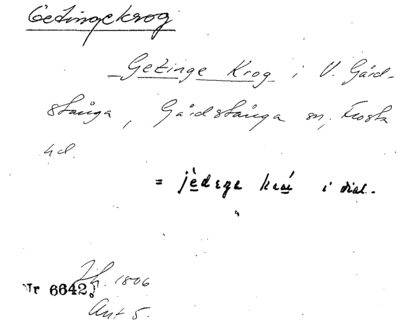 Getingekrog
Getinge Krog i V. Gård-
stånga, Gårdstånga sn, Frosta
hd.
= jèdega kra̱i i dial.
Jb. 1806
Nr 6642.
Ant 5.